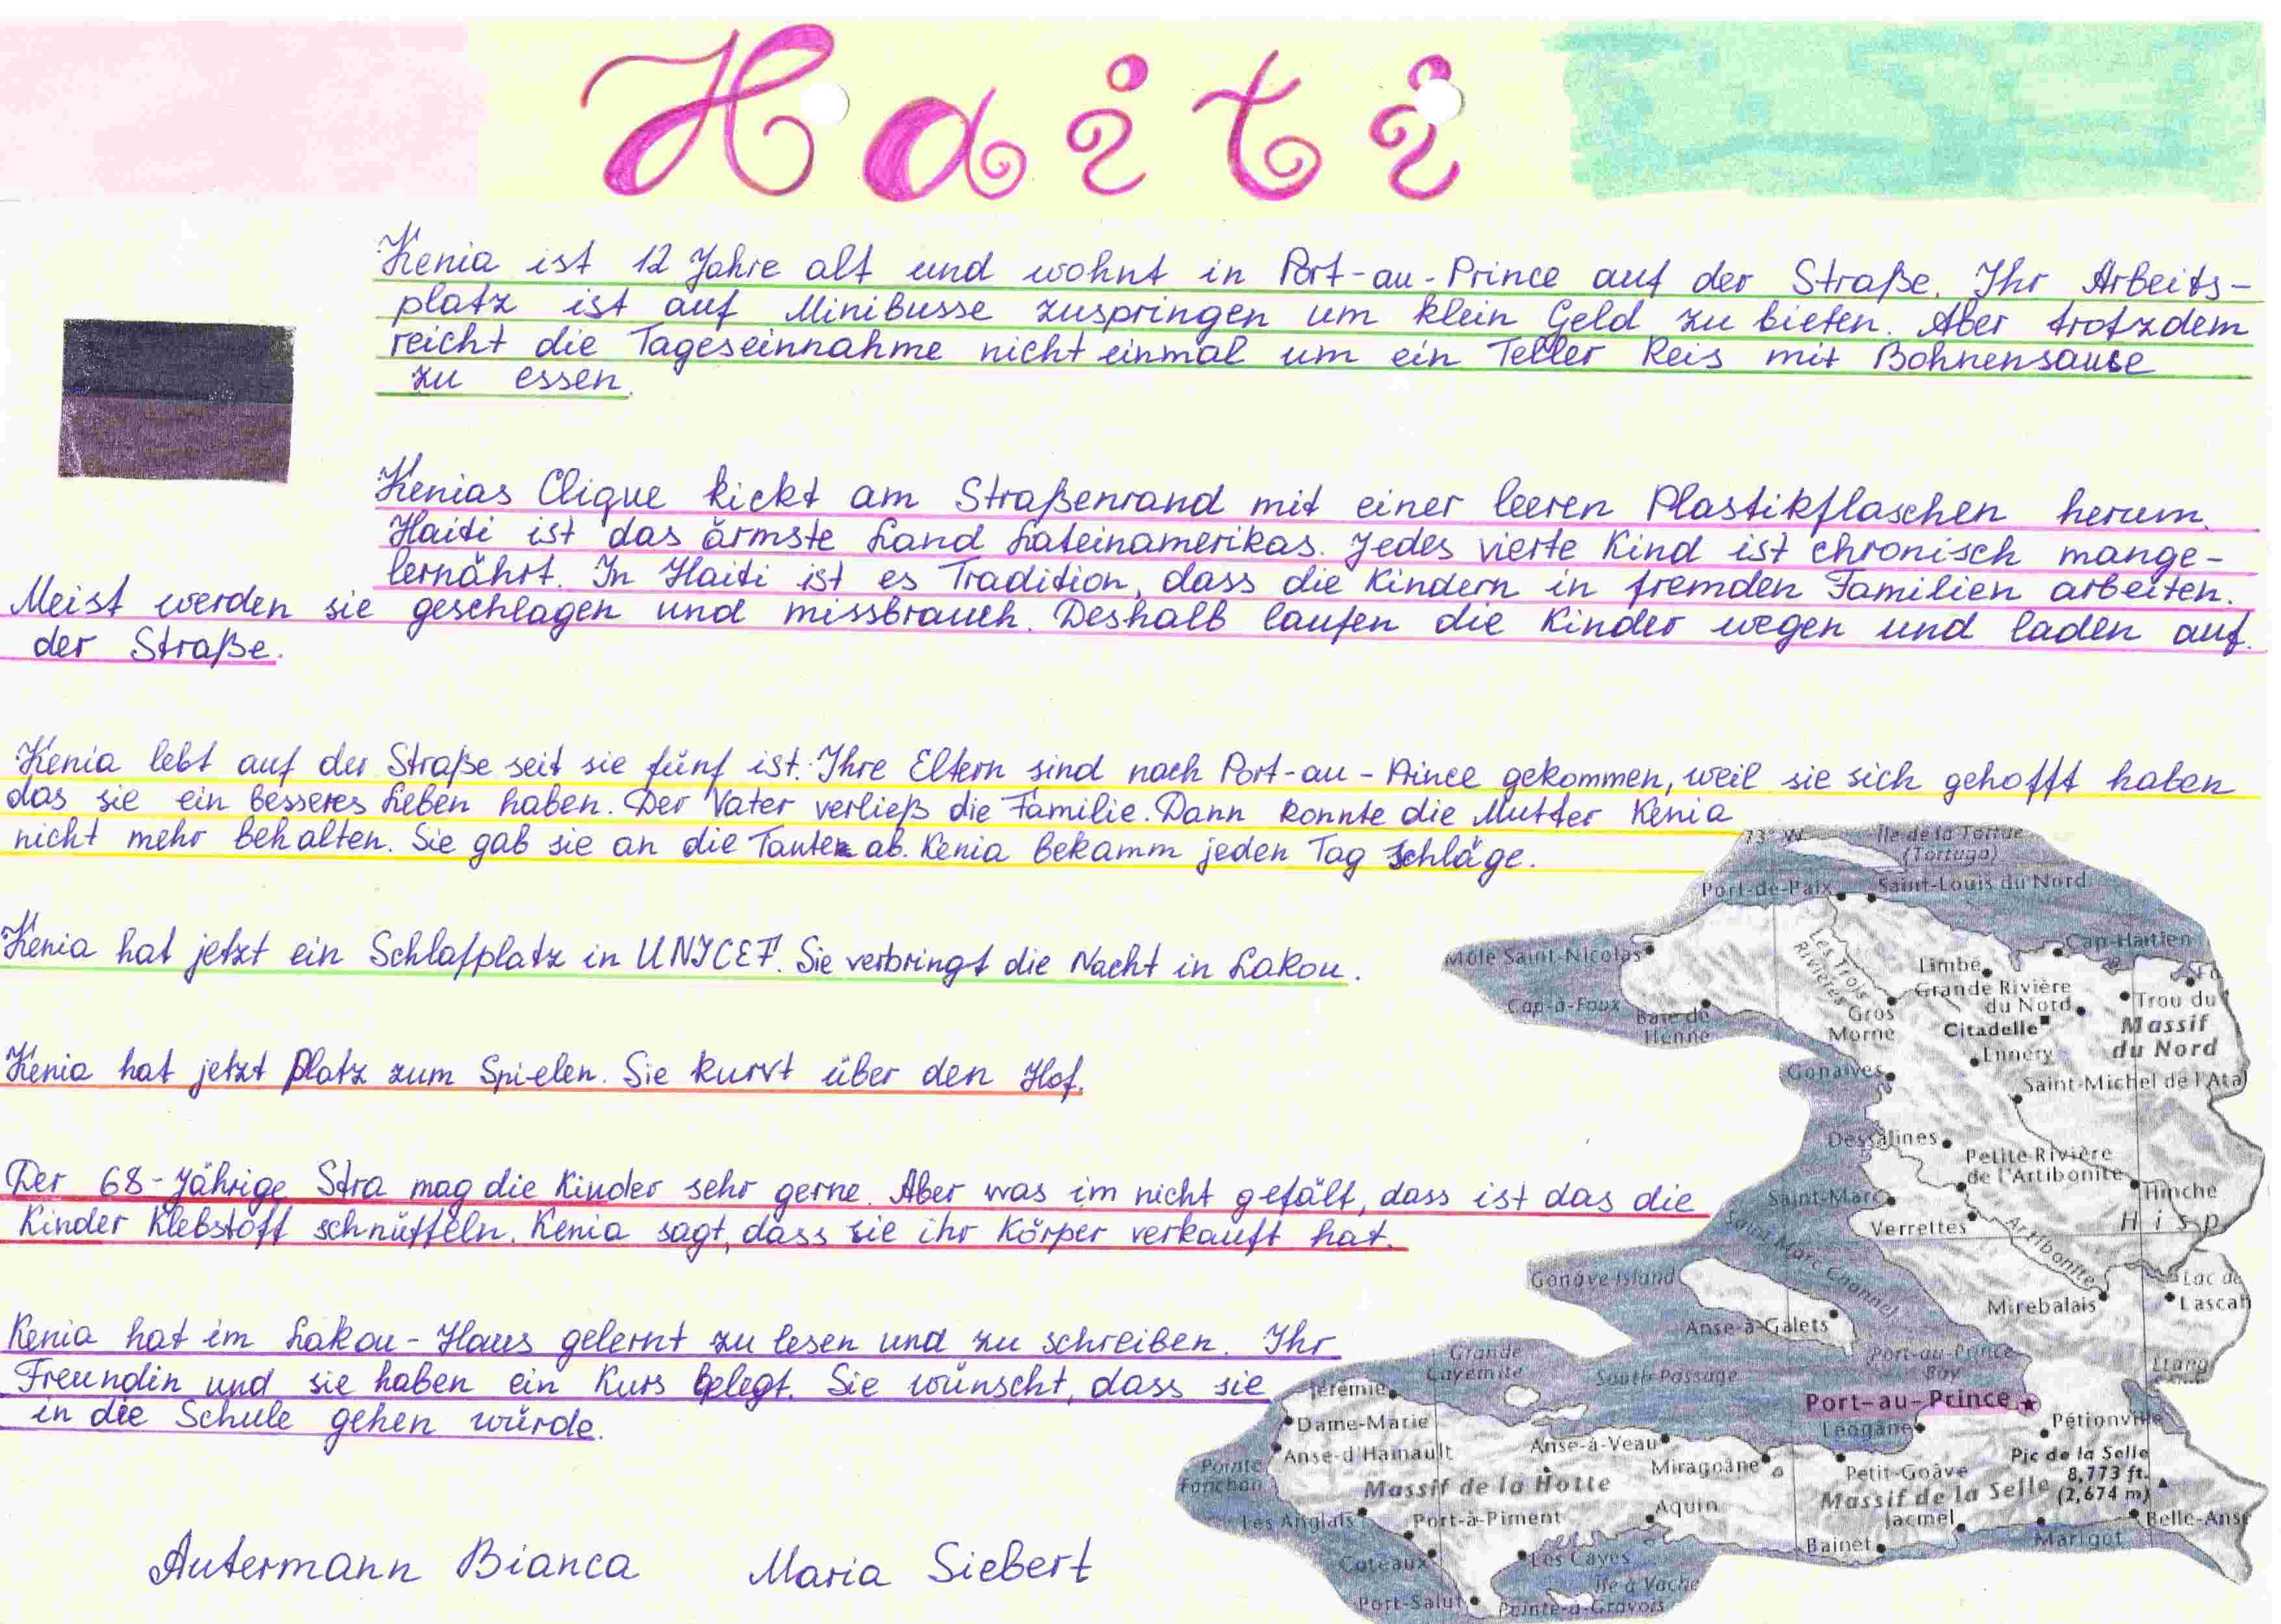 Haiti
Kenia ist 12 Jahre alt und wohnt in Port-au-Prince auf der Straße. Ihr Arbeits-
platz ist auf Minibusse zuspringen um klein Geld zu bieten. Aber trotzdem
reicht die Tageseinnahme nicht einmal um ein Teller Reis mit Bohnensause
zu essen.
Kenias Clique kickt am Straßenrand mit einer leeren Plastikflaschen herum.
Haiti ist das ärmste Land Lateinamerikas. Jedes vierte Kind ist chronisch mange-
lernährt. In Haiti ist es Tradition, dass die Kindern in fremden Familien arbeiten.
Meist werden sie geschlagen und missbrauch. Deshalb laufen die Kinder wegen und laden auf
der Straße.
Kenia lebt auf der Straße seit sie fünf ist. Ihre Eltern sind nach Port-au-Prince gekommen, weil sie sich gehofft haben
das sie ein besseres Leben haben. Der Vater verließ die Familie. Dann konnte die Mutter Kenia
nicht mehr behalten. Sie gab sie an die Tante ab. Kenia bekamm jeden Tag Schläge.
Kenia hat jetzt ein Schlafplatz in UNICEF. Sie verbringt die Nacht in Lakou.
Kenia hat jetzt Platz zum Spielen. Sie kurvt über den Hof.
Der 68-Jährige Stra mag die Kinder sehr gerne. Aber was im nicht gefält, dass ist das die
Kinder Klebstoff schnüffeln. Kenia sagt, dass sie ihr Körper verkauft hat.
Kenia hat im Lakou-Haus gelernt zu lesen und zu schreiben. Ihr
Freundin und sie haben ein Kurs belegt. Sie wünscht, dass sie
in die Schule gehen würde.
Autermann Bianca Maria Siebert
73° W Île de la Tortue
(Tortuga)
Port-de-Paix Saint-Louis du Nord
Môle Saint-Nicolas Cap-Haïtien
Les Trois
Rivières
Limbé
Grande Rivière
du Nord
Trou du
Cap-à-Foux
Baie de
Henne
Gros
Morne
Citadelle
Massif
du Nord
Ennery
Gonaïves
Saint-Michel de l'Atal
Dessalines
Petite Rivière
de l'Artibonite
Hinche
Saint-Marc
Verrettes
Hisp
Artibonite
Saint-Marc Channel
Gonâve Island
Lac de
Lascah
Mirebalais
Anse-à-Galets
Port-au-Prince
Bay
Grande
Cayemite
South Passage
Etang
Jérémie
Port-au-Prince
Dame-Marie
Léogâne
Pétionville
Anse-d'Hainault
Anse-à-Veau
Miragoâne
Pic de la Selle
8,773 ft.
(2,674 m)
Pointe
Fanchon
Massif de la Hotte
Petit-Goâve
Massif de la Selle
Les Anglais
Port-à-Piment
Aquin
Jacmel
Belle-Anse
Marigot
Bainet
Coteaux
Les Cayes
Île à Vache
Port-Salut
Pointe-à-Gravois